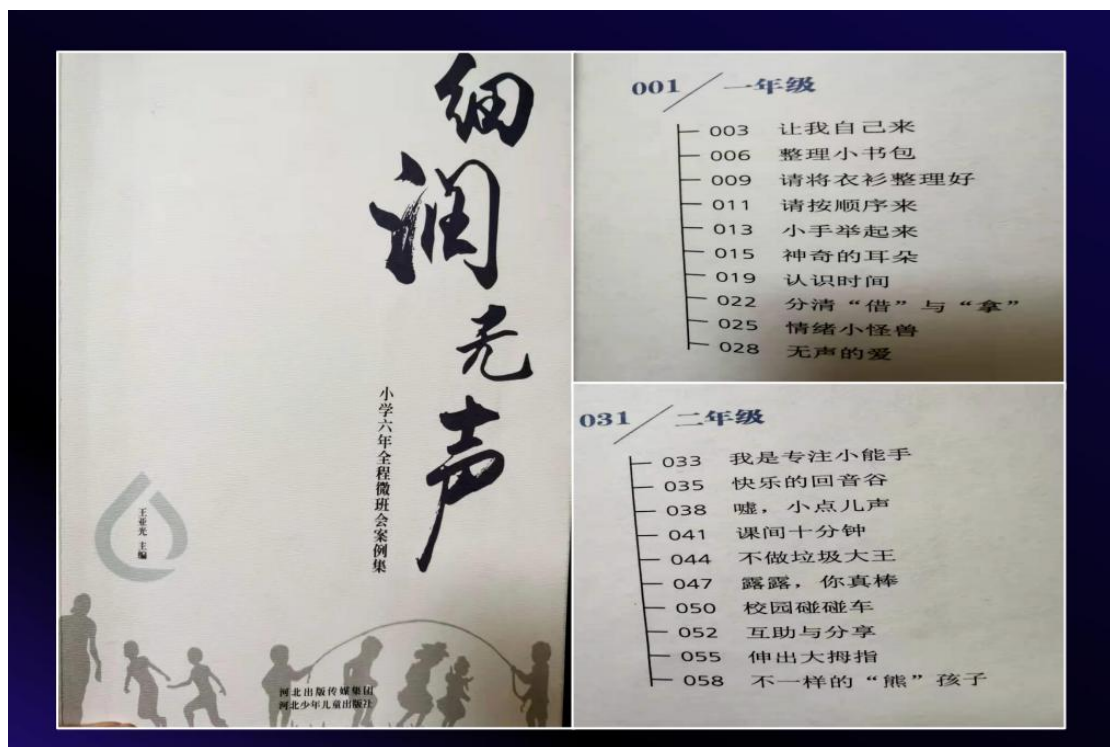 细润无声
小学六年全程微班会案例集
王亚光 主编
河北出版传媒集团
河北少年儿童出版社
001 一年级
003 让我自己来
006 整理小书包
009 请将衣衫整理好
011 请按顺序来
013 小手举起来
015 神奇的耳朵
019 认识时间
022 分清“借”与“拿”
025 情绪小怪兽
028 无声的爱
031 二年级
033 我是专注小能手
035 快乐的回音谷
038 嘘，小点儿声
041 课间十分钟
044 不做垃圾大王
047 露露，你真棒
050 校园碰碰车
052 互助与分享
055 伸出大拇指
058 不一样的“熊”孩子